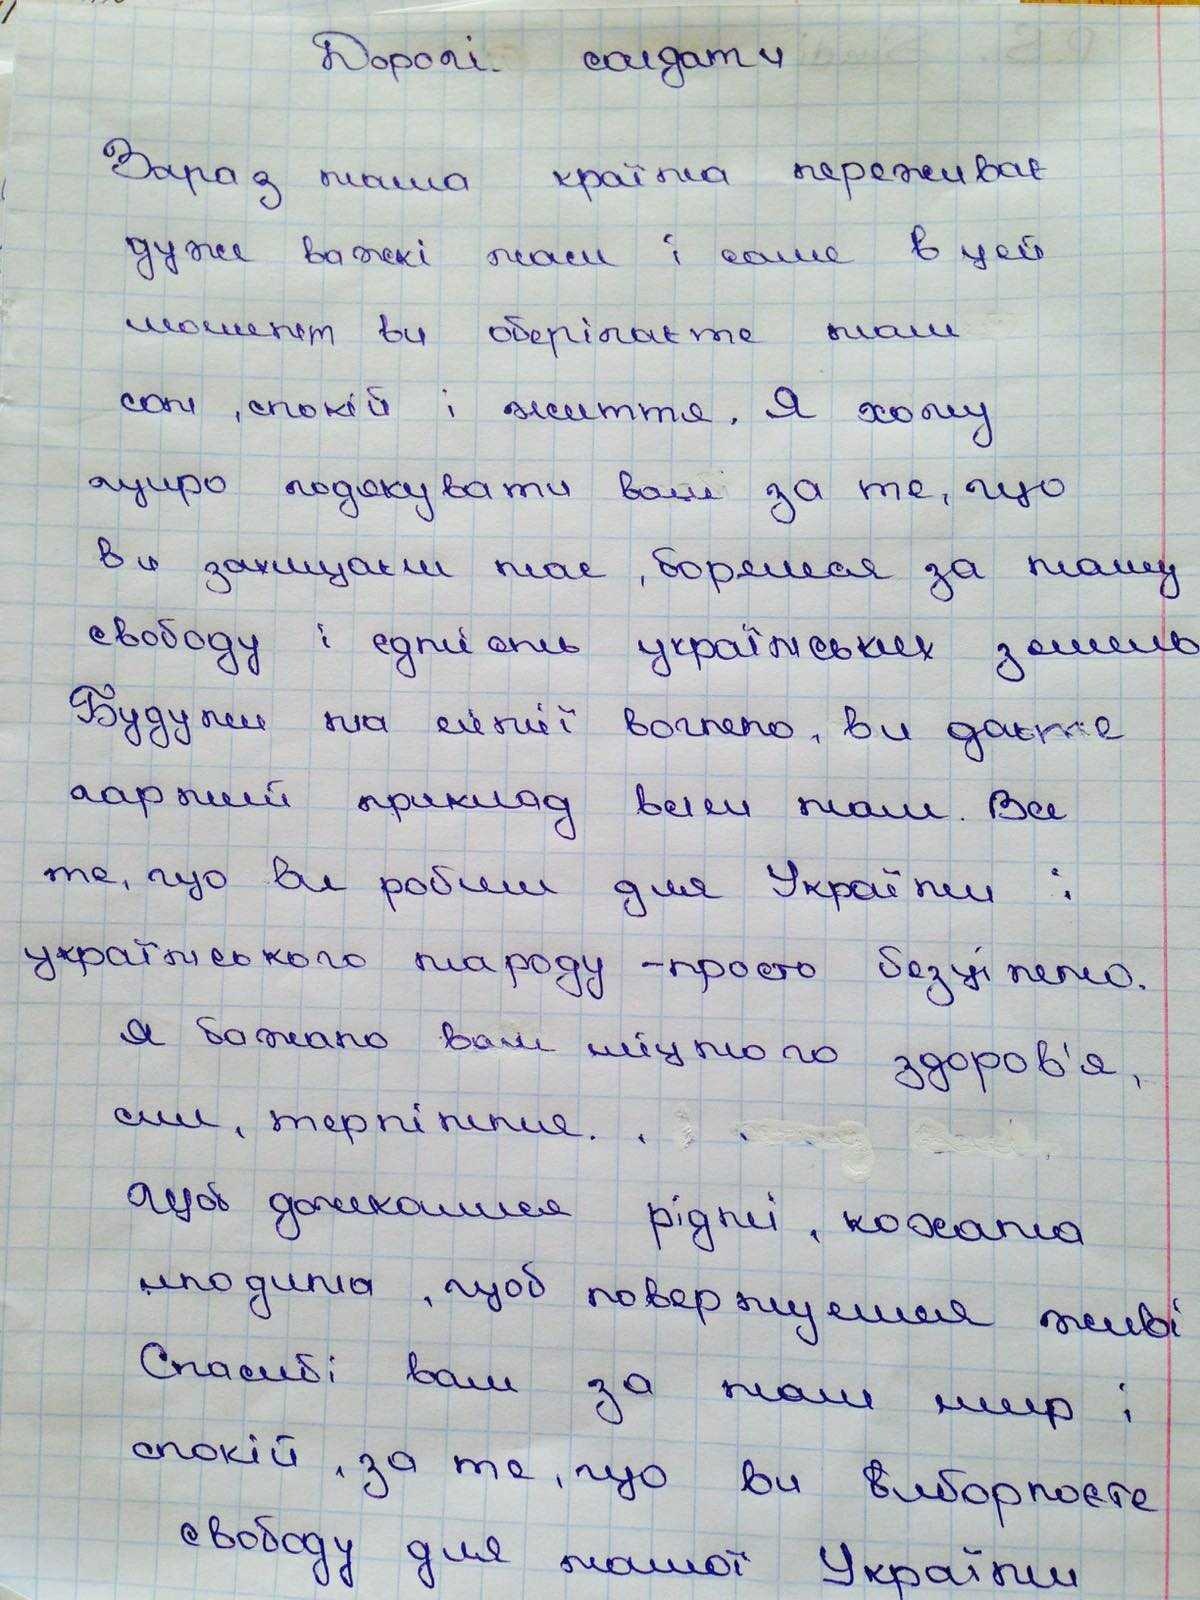 Дорогі солдати
Зараз наша країна переживає
дуже важкі часи і саме в цей
момент ви оберігаєте наш
сон, спокій і життя. Я хочу
щиро подякувати вам за те, що
ви захищаєш нас, борешся за нашу
свободу і єдність українських земель
Будучи на лінії вогню, ви даєте
гарний приклад всім нам. Все
те, що ви робиш для України і
українського народу - просто безцінно.
Я бажаю вам міцного здоров'я,
сил, терпіння.
щоб дочкалися рідні, кохана
людина, щоб повернулися живі
Спасибі вам за наш мир і
спокій, за те, що ви виборюєте
свободу для нашої України